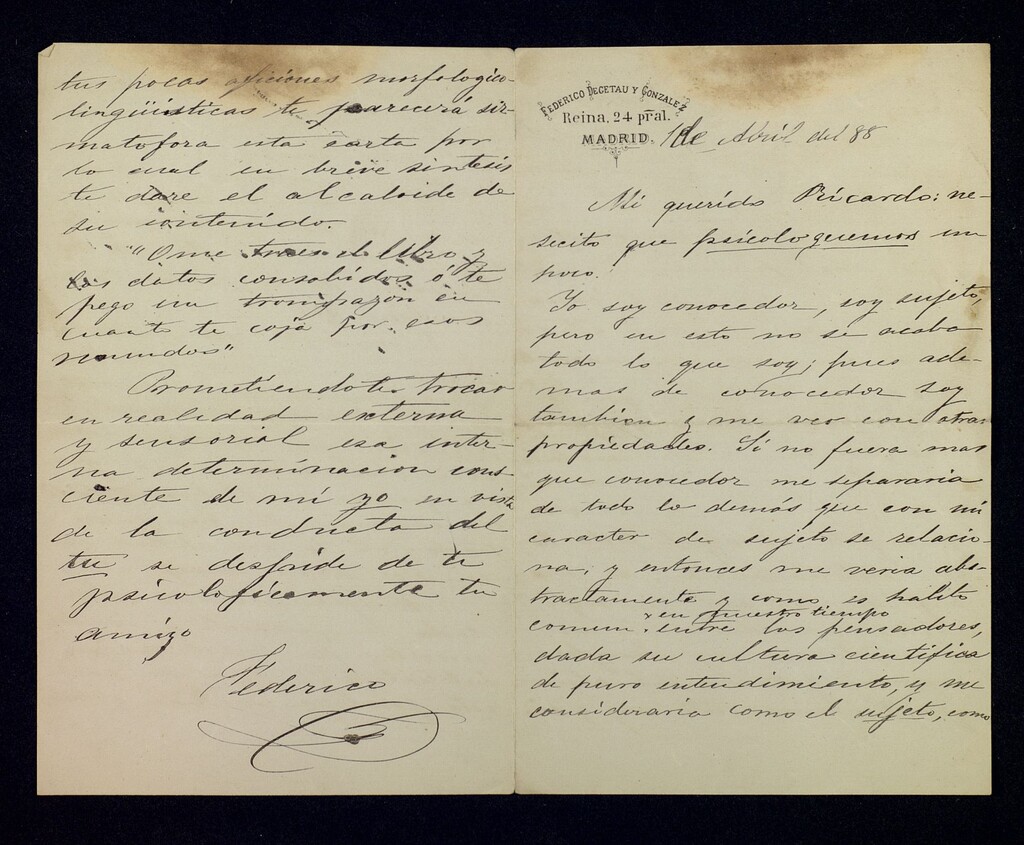 FEDERICO DEGETAU Y GONZALEZ
Reina, 24 pral.
MADRID.
1 de Abril del 88
Mi querido Ricardo: ne-
secito que psicologuemos un
poco.
Yo soy conocedor, soy sujeto,
pero en esto no se acaba
todo lo que soy; pues ade-
mas de conocedor soy
tambien y me veo con otras
propiedades. Si no fuera mas
que conocedor me separaria
de todo lo demás que con mi
caracter de sujeto se relacio-
na, y entonces me veria abs-
tractamente y como es habito
comun en nuestro tiempo entre los pensadores,
dada su cultura cientifica
de puro entendimiento, y me
consideraria como el sujeto, como
tus pocas aficiones morfologico-
lingüisticas te parecerá sir-
matofora esta carta por
lo cual en breve sintesis
te dare el alcaloide de
su contenido.
"O me traes el libro y
los datos consabidos ó te
pego un trompazon en
cuanto te coja por esos
mundos"
Prometiendote trocar
en realidad externa
y sensorial esa inter-
na determinacion cons-
ciente de mi yo en vista
de la conducta del
tu se despide de ti
psicologicamente tu
amigo
Federico